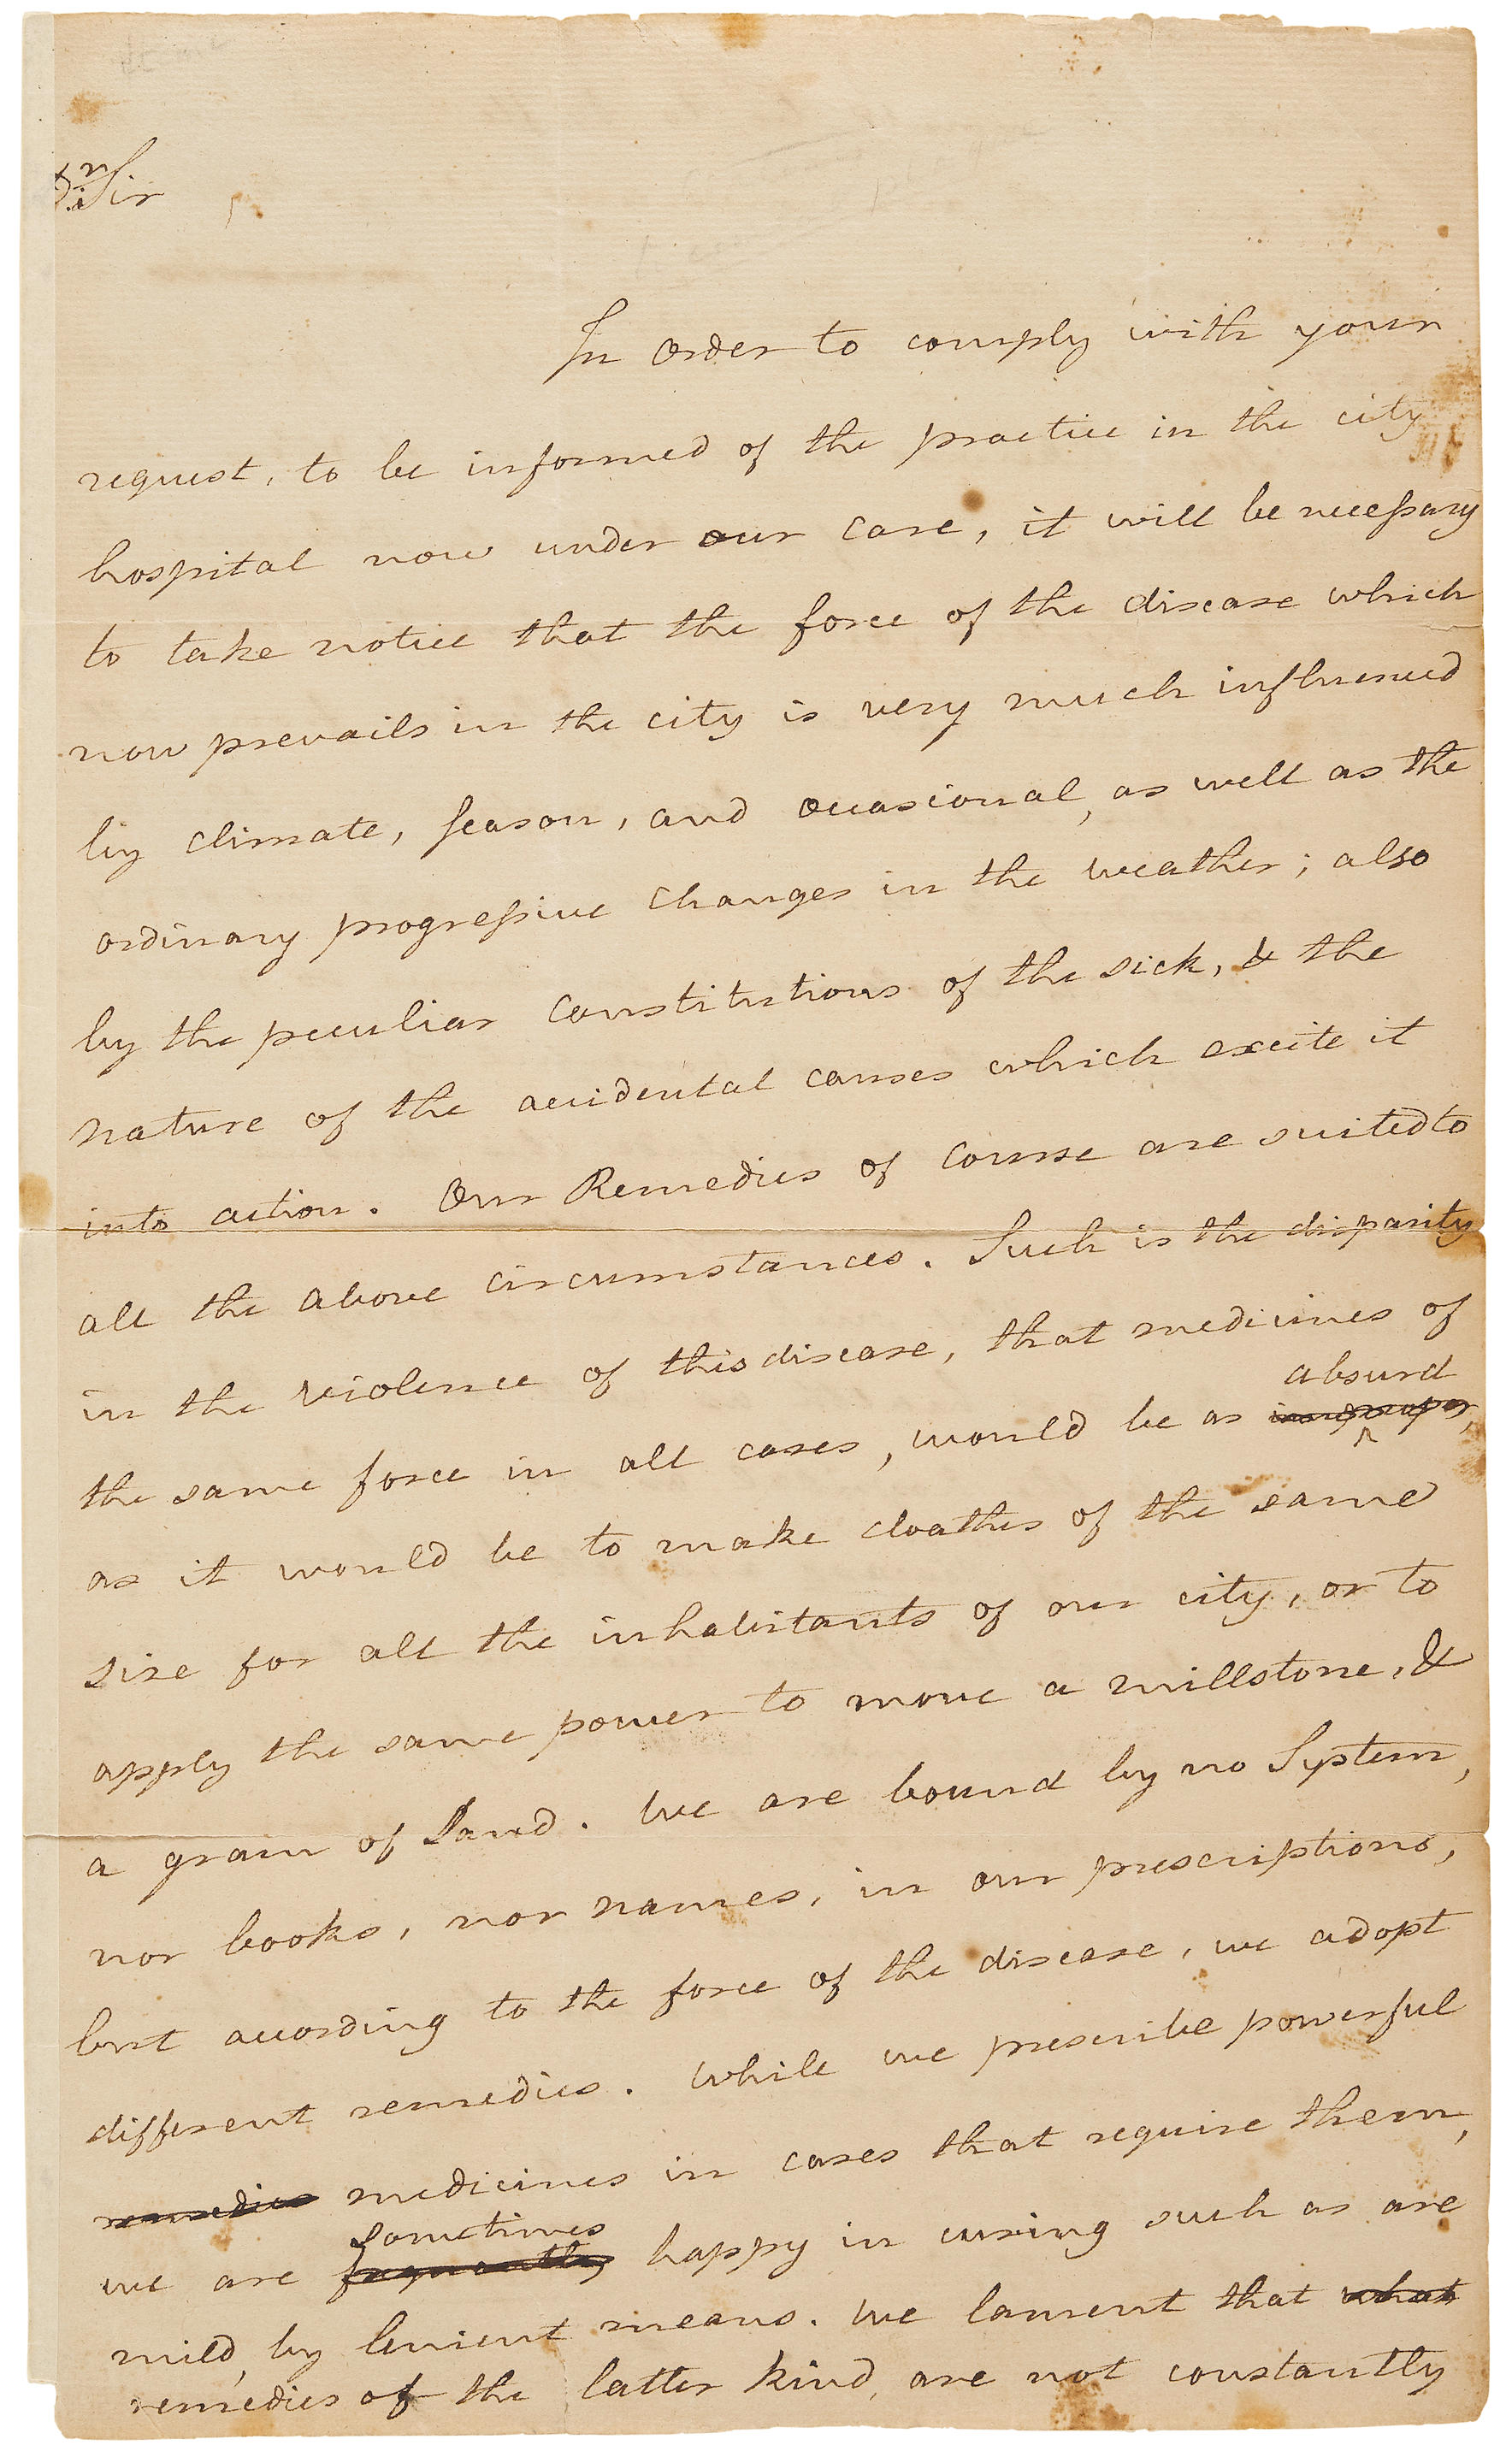 Dr Sir
In order to comply with your
request, to be informed of the practice in the city
hospital now under our care, it will be necessary
to take notice that the force of the disease which
now prevails in the city is very much influenced
by climate, season, and occasional, as well as the
ordinary progressive changes in the weather; also
by the peculiar constitutions of the sick, & the
nature of the accidental causes which excite it
into action. Our Remedies of course are suited to
all the above circumstances. Such is the disparity
in the violence of this disease, that medicines of
absurd
the same force in all cases, would be as improper,
as it would be to make cloathes of the same
size for all the inhabitants of our city, or to
apply the same power to move a millstone, &
a grain of Sand. We are bound by no System,
nor books, nor names, in our prescriptions,
but according to the force of the disease, we adopt
different remedies. While we prescribe powerful
remedies medicines in cases that require them,
sometimes
we are frequently happy in curing such as are
mild, by lenient means. We lament that what
remedies of the latter kind, are not constantly